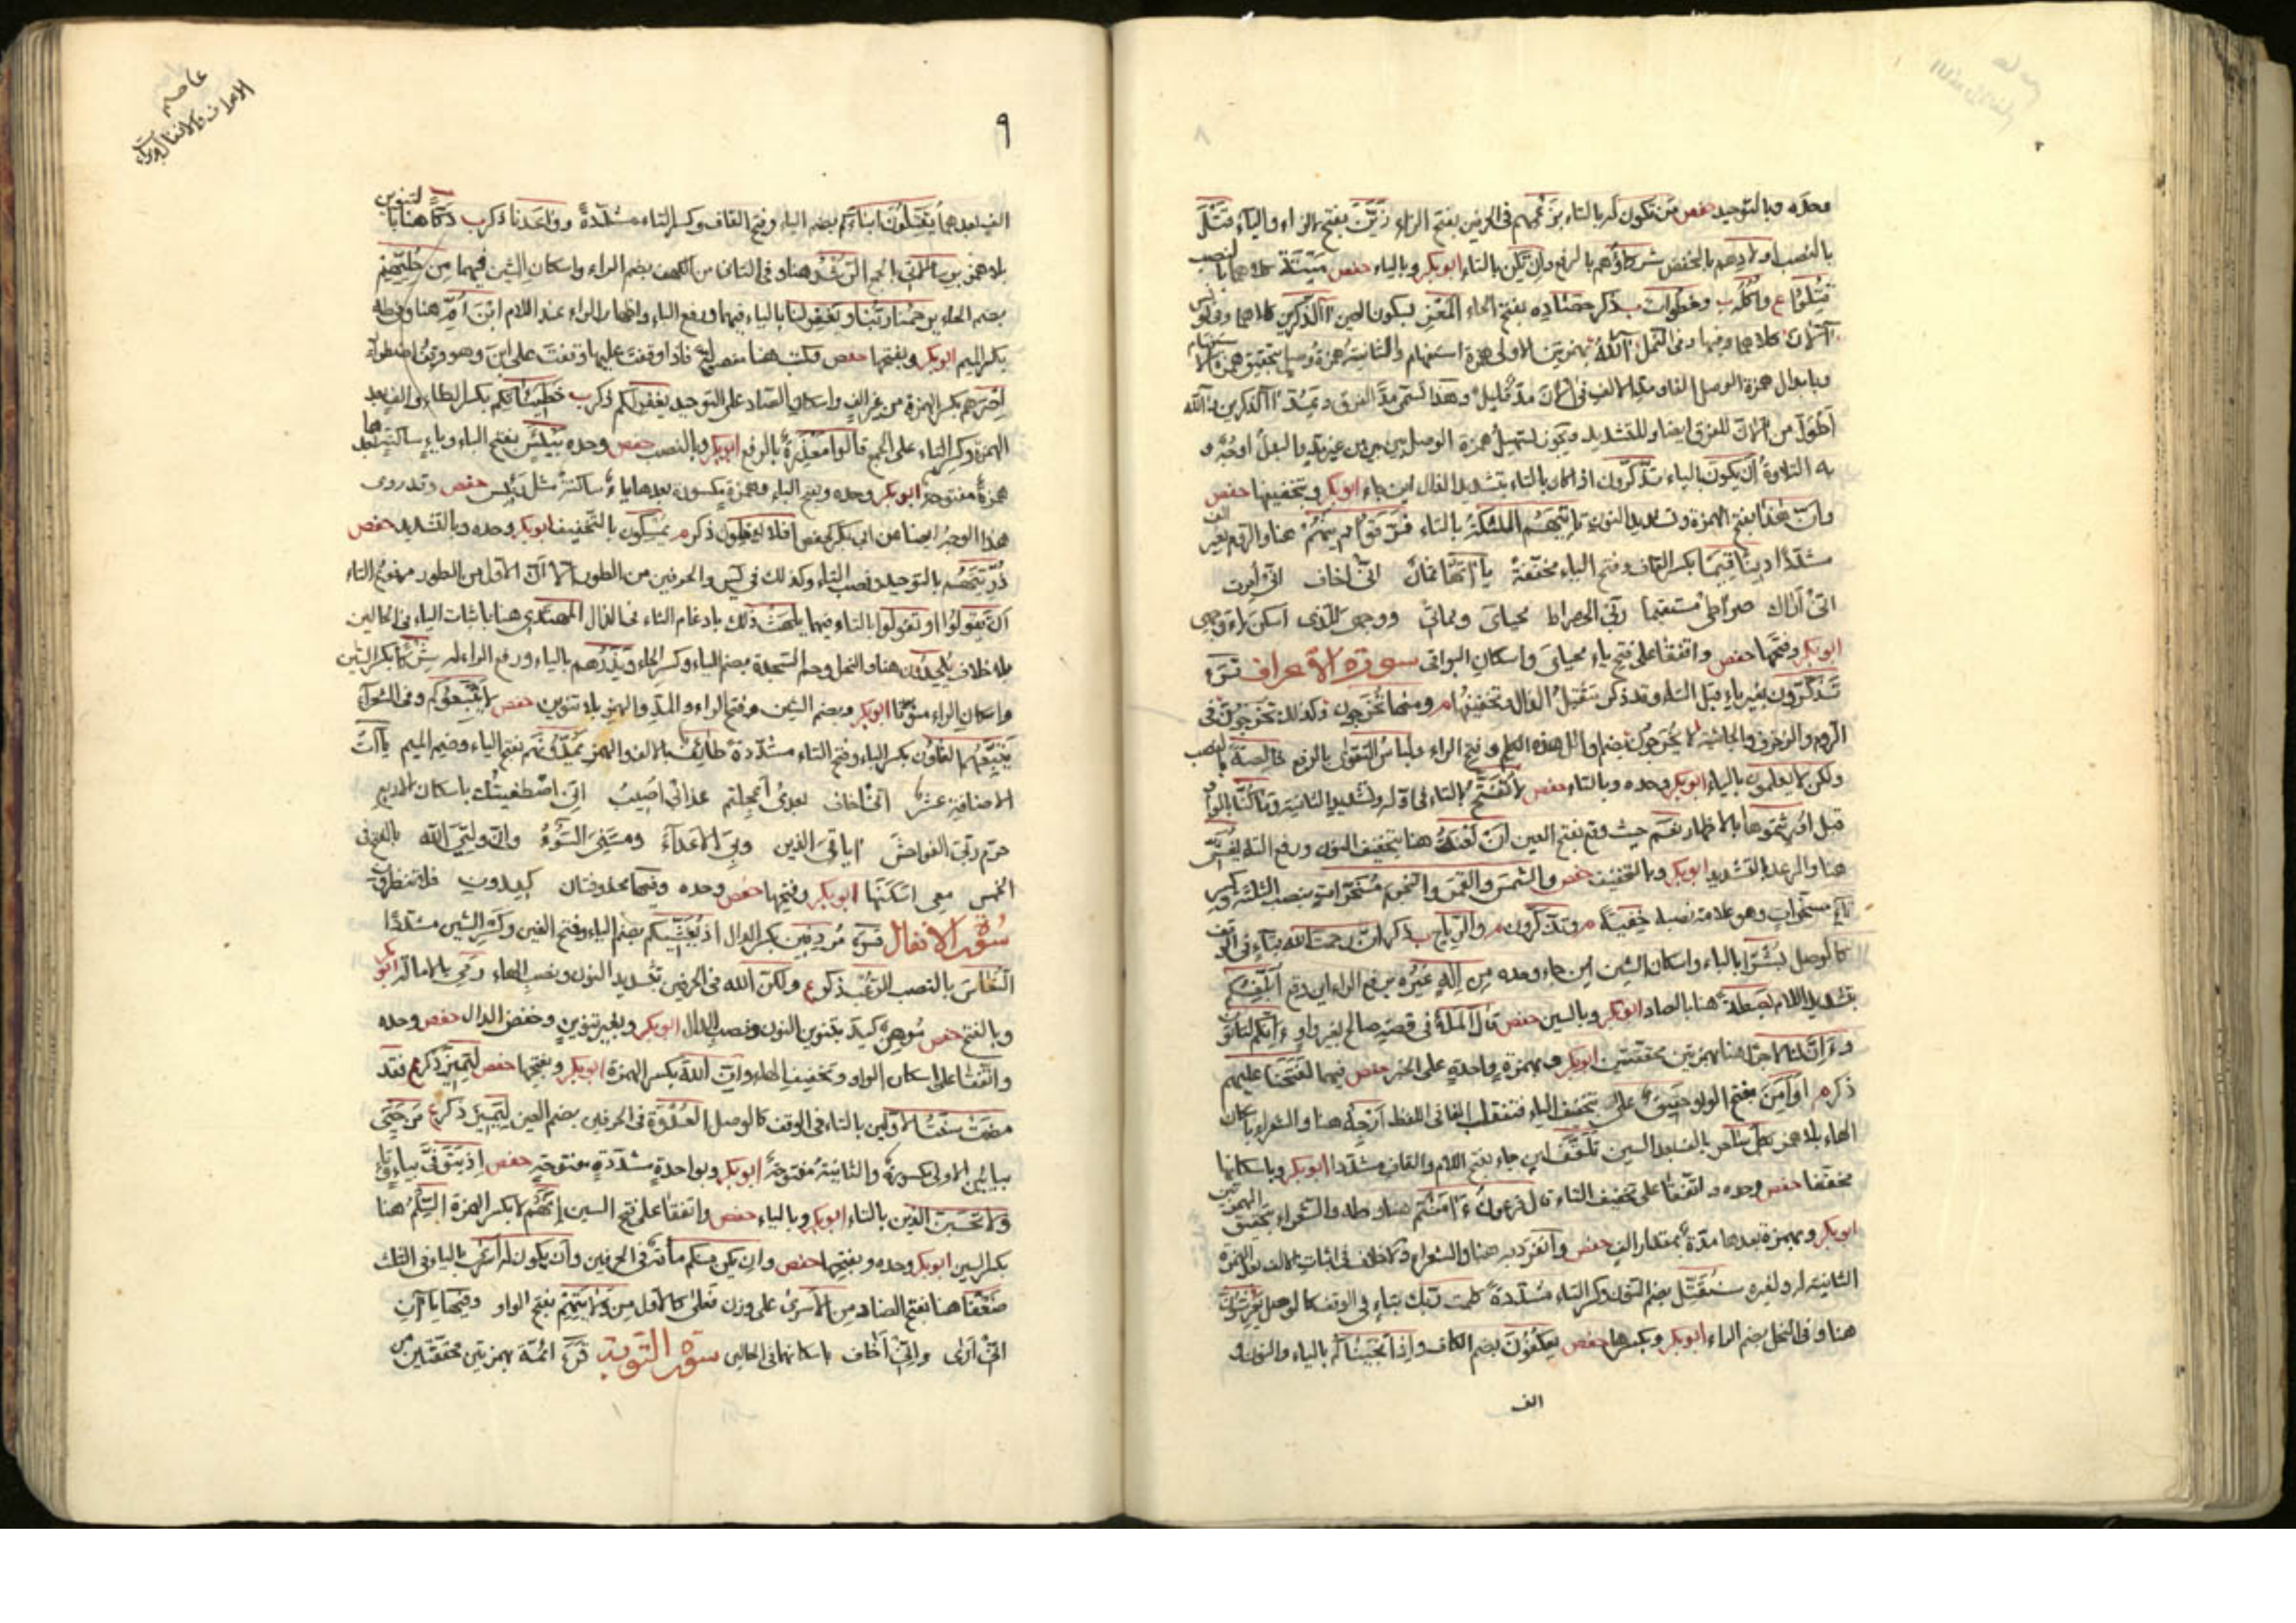 وحده وبالتوحيد حفص من تكون له بالتاء بزعمهم في الحرفين بفتح الزاء زين بفتح الزاء والياء قتل
بالنصب اولادهم بالخفض شركاؤهم بالرفع وان تكن بالتاء ابوبكر وبالياء حفص ميتة كلاهما بالنصب
قتلوا ع واكله ب وخطوات ب ذكر حصاده بفتح الحاء المعز بسكون العين آالذكرين كلاهما وفي يونس
آلآن كلاهما وفيها وفي النمل آالله بهمزتين الاولى همزة استفهام والثانية همزة وصل
وبابدال همزة الوصل الفا
اطول من الآن للفرق ايضا وللتشديد ويكون تسهيل همزة الوصل بين بين من غير مد والبدل اوجه و
به التلاوة ان يكون بالياء تذكرون اذا كان بالتاء بتشديد الذال اين جاء ابوبكر وبتخفيفها حفص
وان هذا بفتح الهمزة وتشديد النون تاتيهم الملئكة بالتاء فرقوا دينهم هنا والروم بغير الف
مشددا دينا قيما بكسر القاف وفتح الياء مخففة ياآتها ثمان اني اخاف اني امرت
اني اراك صراطي مستقيما ربي الى صراط محياي ومماتي ووجهي للذي اسكن ياء وجهي
ابوبكر وفتحها حفص واتفقا على فتح ياء محياي واسكان البواقي سورة الاعراف قرء
تذكرون بغير ياء قبل التاء وقد ذكر تثقيل الذال وتخفيفها م ومنها تخرجون وكذلك تخرجون في
الروم والزخرف والجاثية لا يخرجون بضم اوائل هذه الكلم وفتح الراء ولباس التقوى بالرفع خالصة بالنصب
ولكن لا يعلمون بالياء ابوبكر وحده وبالتاء حفص لا تفتح بالتاء في اوله وتشديد التاء الثانية وما كنا بالواو
قبل اورثتموها بالاظهار نعم حيث وقع بفتح العين ان لعنة هنا بتخفيف النون ورفع التاء يغشى
هنا والرعد بالتشديد ابوبكر وبالتخفيف حفص والشمس والقمر والنجوم مسخرات بنصب الثلثة وكسر
تاء مسخرات وهو علامة نصبه خفية م وتذكرون م والرياح ب ذكر ان رحمت الله بتاء في الوقف
كالوصل بشرا بالباء واسكان الشين اين جاء وحده من اله غيره برفع الراء اين وقع ابلغكم
بتشديد اللام بصطة هنا بالصاد ابوبكر وبالسين حفص قال الملأ في قصة صالح بغير واو ءانكم لتاتون
وءان لنا لاجرا هنا بهمزتين محققتين ابوبكر وبهمزة واحدة على الخبر حفص فيهما لفتحنا عليهم
ذكر م اوامن بفتح الواو حقيق على بتخفيف الياء فتنقلب الفا في اللفظ ارجه هنا والشعراء باسكان
الهاء بلا همز بكل ساحر بالف بعد السين تلقف اين جاء بفتح اللام والقاف مشددا ابوبكر وباسكانها
مخففا حفص وحده واتفقا على تخفيف التاء قال فرعون ءامنتم هنا وطه والشعراء بتحقيق الهمزتين
ابوبكر وبهمزة بعدها مدة بمقدار الف حفص وانفرد به هنا والشعراء ولا خلاف في اثبات الالف بعد الهمزة
الثانية له ولغيره سنقتل بضم النون وكسر التاء مشددة كلمت ربك بتاء في الوقف كالوصل يعرشون
هنا وفي النحل بضم الراء ابوبكر وبكسرها حفص يعكفون بضم الكاف واذ انجيناكم بالياء والنون و
الف
عاصم
الاعراف والانفال وبراءة
٩
الف بعدهما يقتلون ابناءكم بضم الياء وفتح القاف وكسر التاء مشددة وواعدنا ذكر ب دكا هنا بالتنوين
بلا همز برسالاتي بالجمع الرشد هنا وفي الثالث من الكهف بضم الراء واسكان الشين فيهما من حليهم
بضم الحاء يرحمنا ربنا ويغفر لنا بالياء فيهما ورفع الباء واظهار الراء عند اللام ابن ام هنا وفي طه
بكسر الميم ابوبكر وبفتحها حفص وكتب هنا منفصلة فاذا وقفت عليها وقفت على ابن
اصرهم بكسر الهمزة من غير الف واسكان الصاد على التوحيد يغفر لكم ذكر ب خطيئاتكم بكسر الطاء والف بعد
الهمزة وكسر التاء على الجمع قالوا معذرة بالرفع ابوبكر وبالنصب حفص وحده بيئس بفتح الباء وياء ساكنة بعدها
همزة مفتوحة ابوبكر وحده وبفتح الباء وهمزة مكسورة بعدها ياء ساكنة مثل رئيس حفص وقد روى
هذا الوجه ايضا عن ابي بكر كحفص افلا تعقلون ذكر م يمسكون بالتخفيف ابوبكر وحده وبالتشديد حفص
ذريتهم بالتوحيد ونصب التاء وكذلك في يس والحرفين من الطور الا ان الاول من الطور مرفوع التاء
ان تقولوا او تقولوا بالتاء فيهما يلهث ذلك بادغام الثاء في الذال المهتدي هنا باثبات الياء في الحالين
بلا خلاف يلحدون هنا والنحل وحم السجدة بضم الياء وكسر الحاء ويذرهم بالياء ورفع الراء له شركا بكسر الشين
واسكان الراء منونا ابوبكر وبضم الشين وفتح الراء والمد والهمز بلا تنوين حفص لا يتبعوكم وفي الشعراء
يتبعهم الغاون بكسر الباء وفتح التاء مشددة طائف بالالف والهمز يمدونهم بفتح الياء وضم الميم ياآت
الاضافة عشر اني اخاف بعدي اعجلتم عذابي اصيب اني اصطفيتك باسكان الاربع
حرم ربي الفواحش اياتي الذين وبي الاعداء ومسني السوء وان وليي الله بالفتح في
الخمس معي اسكنها ابوبكر وفتحها حفص وحده وفيها محذوفتان كيدون فلا تنظرون
سورة الانفال قرء مردفين بكسر الدال اذ يغشيكم بضم الياء وفتح الغين وكسر الشين مشددا
النعاس بالنصب الرعب ذكر ع ولكن الله في الحرفين بتشديد النون ونصب الهاء رمى بالامالة ابوبكر
وبالفتح حفص موهن كيد بتنوين النون ونصب الدال ابوبكر وبغير تنوين وخفض الدال حفص وحده
واتفقا على اسكان الواو وتخفيف الهاء وان الله بكسر الهمزة ابوبكر وبفتحها حفص ليميز ذكر ع فقد
مضت سنت الاولين بالتاء في الوقف كالوصل العدوة في الحرفين بضم العين ليميز ذكر ع من حيي
بيائين الاولى مكسورة والثانية مفتوحة ابوبكر وبواحدة مشددة مفتوحة حفص اذ يتوفى بياء وتاء
ولا تحسبن الذين بالتاء ابوبكر وبالياء حفص واتفقا على فتح السين انهم لا بكسر الهمزة السلم هنا
بكسر السين ابوبكر وحده وبفتحها حفص وان يكن منكم مائة في الحرفين وان يكون له اسرى بالياء في الثلث
ضعفا هنا بفتح الضاد من الاسرى على وزن فعلى كالاول من ولايتهم بفتح الواو وفيها ياآن
اني ارى واني اخاف باسكانهما في الحالين سورة التوبة قرء ائمة بهمزتين محققتين